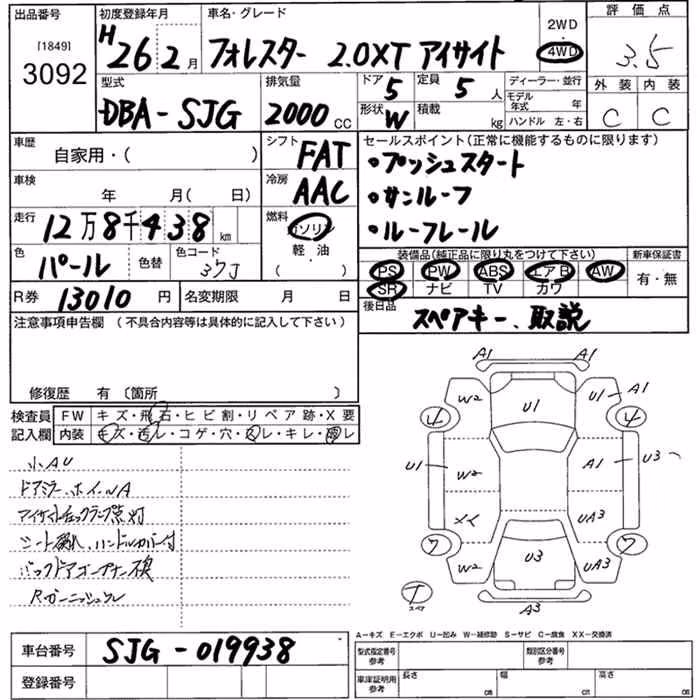 出品番号 初度登録年月 車名・グレード 2WD・4WD 評価点
[1849]
3092 H26 2月 フォレスター 2.0XT アイサイト 3.5
型式 排気量 ドア 5 定員 5人 ディーラー・並行 外装 内装
DBA-SJG 2000cc 形状 W 積載 kg モデル年式 年 C C
ハンドル 左・右
車歴 自家用・( ) シフト FAT セールスポイント(正常に機能するものに限ります)
車検 年 月( 日) 冷房 AAC ・プッシュスタート
・サンルーフ
走行 12万8千438km 燃料 ガソリン ・ルーフレール
軽・油
( )
色 パール 色替 色コード 37J 装備品(純正品に限り丸をつけて下さい) 新車保証書
PS PW ABS エアB AW 有・無
R券 13010円 名変期限 月 日 SR ナビ TV カワ
注意事項申告欄 (不具合内容等は具体的に記入して下さい) 後日品 スペアキー、取説
修復歴 有〔箇所 〕
検査員 FW キズ・飛石・ヒビ割・リペア跡・X要
記入欄 内装 キズ・汚レ・コゲ・穴・スレ・キレ・
小AU
ドアミラー、ホイールA
アイサイトチェックランプ点灯
シート破れ、ハンドルカバー付
A1 A1
W2 U1 U1 A1
4 4
U1 W2 A1 U3
メイ UA3
7 7
W2 U3 UA3
T
スペア A3
A-キズ E-エクボ U-凹み W-補修跡 S-サビ C-腐食 XX-交換済
車台番号 SJG-019938 型式指定番号 参考 類別区分番号 参考
登録番号 車庫証明用 参考 長さ cm 幅 cm 高さ cm